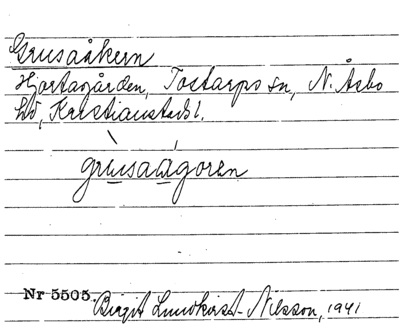 Grusaåkern
Hjortagården, Tostarps sn, N. Åsbo
hd, Kristianstads l.
grusaågoren
Nr 5505. Birgit Lundkvist-Nilsson, 1941